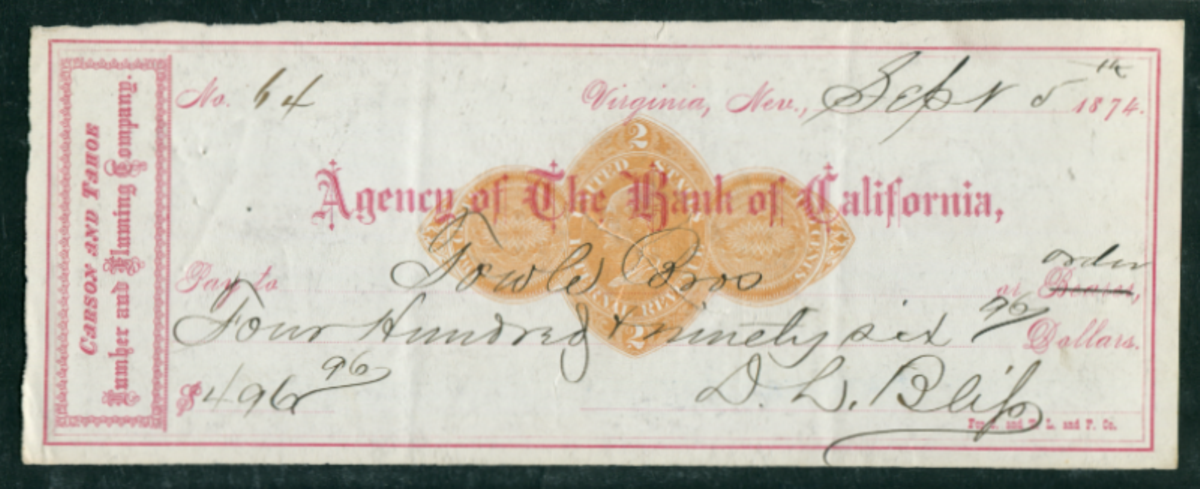 CARSON AND TAHOE
Lumber and Fluming Company.
No. 64 Virginia, Nev., Sept 5th 1874.
2
UNITED STATES
Agency of The Bank of California,
order
Pay to Towle Bros or Bearer,
Four Hundred & ninety six 96 Dollars.
2
$496 96
D. L. Bliss
For C. and T. L. and F. Co.